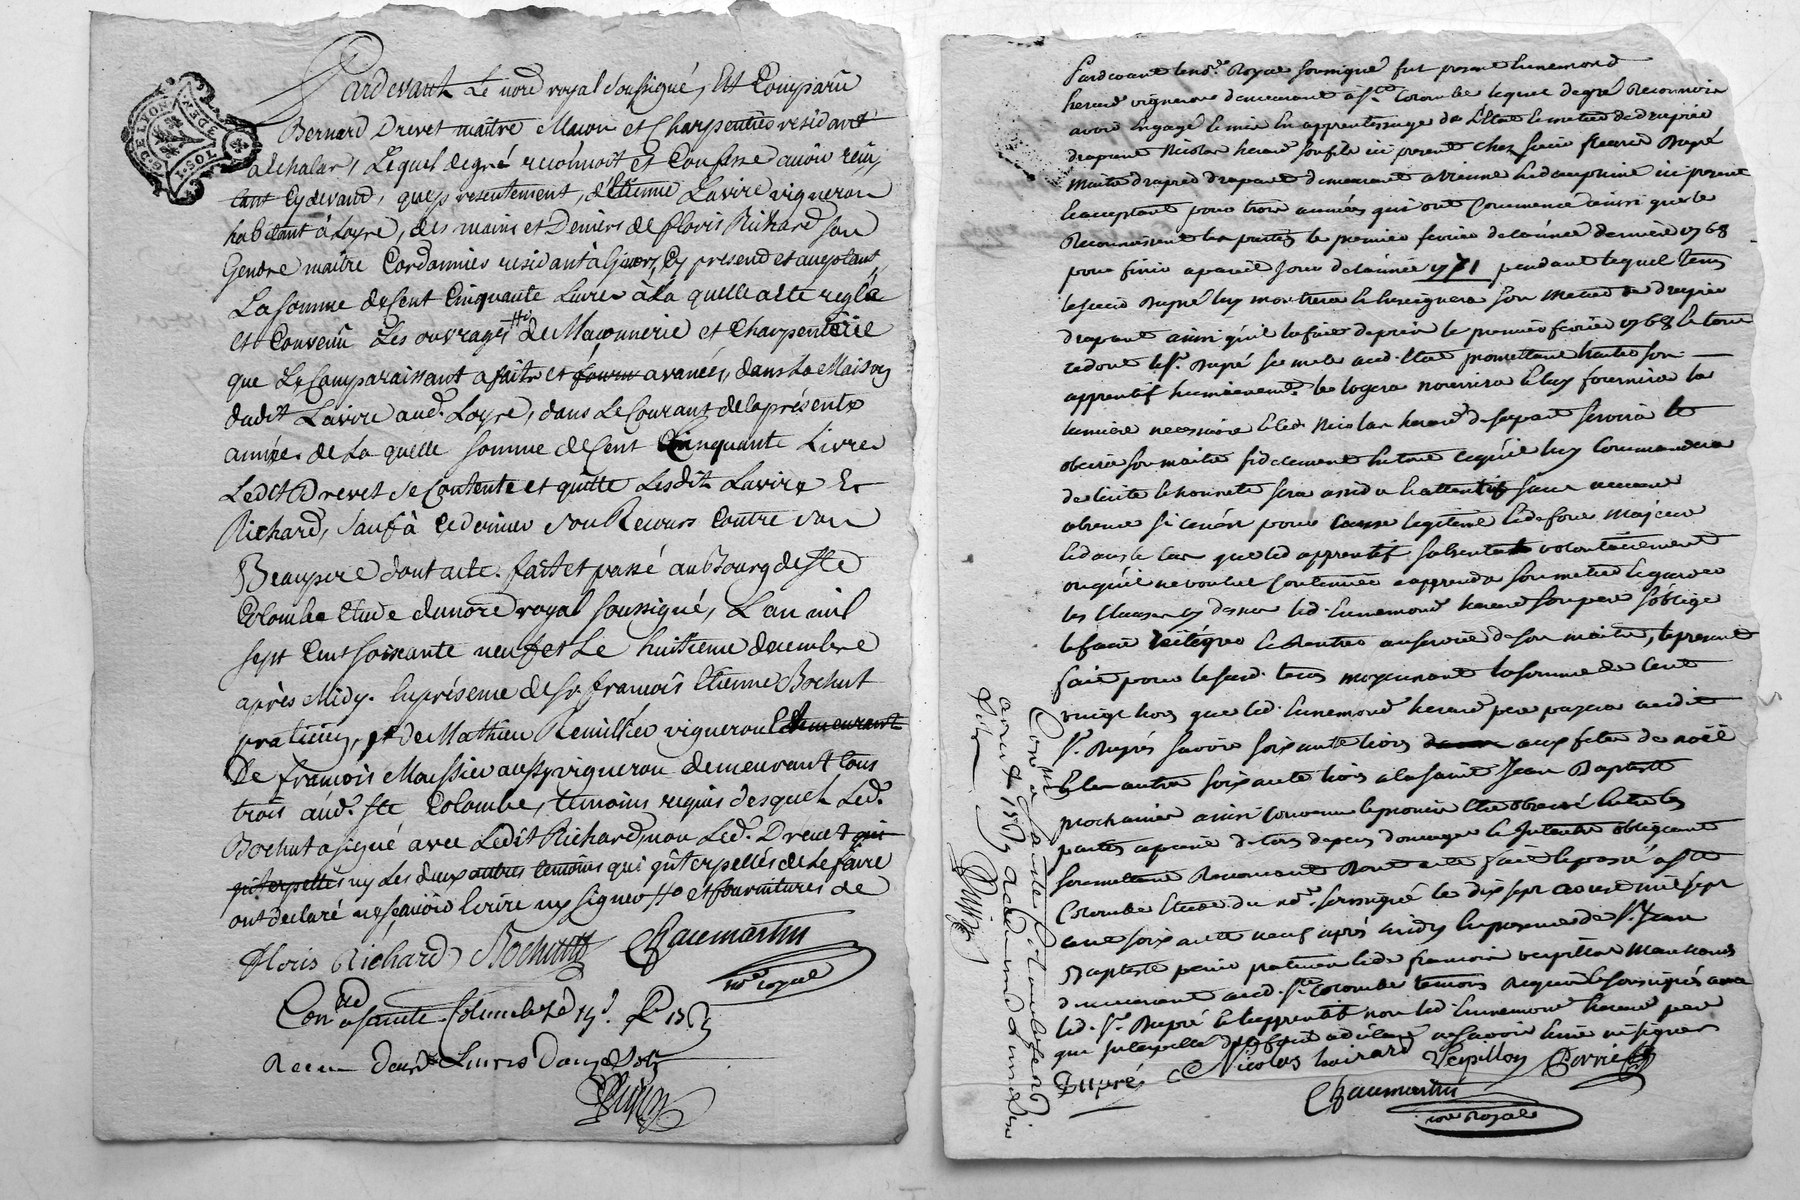 GDE LYON
3 DEN
TOS.1
Pardevant Le nore royal soussigné, Est Comparu
Bernard Drevet maitre Macon et Charpentier residant
a Echalas, Lequel de gré reconnoit et Confesse avoir reçu
tant Cydevant, que presentement, d'Etienne Lavire vigneron
habitant à Loyre, des mains et Deniers de floris Richard Son
Gendre maitre Cordonnier residant à Givors, Cy present et aceptant
La Somme de Cent Cinquante Livres à La quelle a été reglé
et Convenû Les ouvrages # de Maçonnerie et Charpenterie
que Le Comparaissant a faits et avancés, dans La Maison
dudit Lavire aud. Loyre, dans Le Courant de la présente
année de La quelle Somme de Cent Cinquante Livres
Ledit Drevet Se Contente et quitte Lesdits Lavire Et
Richard, Sauf à Ce dernier son Recours Contre son
Beaupere dont acte. fait et passé au Bourg de Ste
Colombe Etude du nore royal soussigné, L'an mil
sept Cent soixante neuf et Le huitieme decembre
après Midy. En présence de sr. françois Etienne Bochut
praticien, et de Mathieu Remillier vigneron Et demeurant
De françois Massieu aussy vigneron demeurant tous
trois aud. Ste Colombe, temoins requis desquels Led.
Bochut a signé avec Ledit Richard, non Led. Drevet qui
interpellés ny Les deux autres temoins qui interpellés de Le faire
ont declaré ne sçavoir Ecrire ny signer # et fournitures de
floris Richard Bochut Chaumartin
nore royal
Con.lé a Sainte Colombe Le 19
Recu Livres
Pardevant le nore. Royal soussigné fut present Ennemond
herard vigneron demeurant a Ste Colombe lequel de gré Reconnoit
avoir Engagé et mis En apprentissage de L'Etat et metier de drapier
drapant Nicolas herard son fils ici present chez sieur fleurie Dupré
maitre drapier drapant demeurant a vienne En dauphiné ici present
Et acceptant pour trois années qui ont Commencé ainsi que le
Reconnoissent les parties le premier fevrier de l'année derniere 1768
pour finir a pareil Jour de l'année 1771 pendant lequel tems
le sieur Dupré luy montrera Et Enseignera son metier de drapier
drapant ainsi qu'il la fait depuis le premier fevrier 1768 Et tout
ce dont le sr. Dupré se mele aud. Etat promettant traiter son
apprentif humainement le logera nourrira Et luy fournira la
lumiere necessaire Et led. Nicolas herard de sa part servira Et
obeira son maitre fidelement En tout ce qu'il luy Commandera
de licite Et honnete sera assidu Et attentif sans aucune
absence si ce n'est pour Cause legitime Et de force majeure
Et dans le cas que led apprentif s'absentat volontairement
ou qu'il ne voulut Continuer a apprendre son metier Et garder
les Clauses cy dessus led. Ennemond herard son pere s'oblige
le faire reintegrer Et Rentrer au service de son maitre, le present
fait pour le susd. tems moyennant la somme de Cent
vingt livres que led. Ennemond herard pere payera audit
sr. Dupré savoir soixante livres aux fetes de noël
Et les autres soixante livres a la saint Jean Baptiste
prochaines ainsi Convenu Et promis Etre observé Entre les
parties a peine de tous depens domages Et Interets obligeant
soumettant Renonçant Dont acte fait Et passé a Ste
Colombe Etude du nore. soussigné le dix sept aoust mil sept
cent soixante neuf après midy En presence de sr. Jean
Baptiste perrié praticien Et de françois verpillon Marchand
demeurant aud. Ste Colombe temoins Requis Et soussignés avec
led. sr. Dupré Et l'apprentif non led. Ennemond herard pere
qui Interpellé de le faire a declaré ne savoir Ecrire ni signer
Dupré Nicolas hairard Verpillon Perrié
Chaumartin
nore Royal
Con.lé a Sainte Colombe